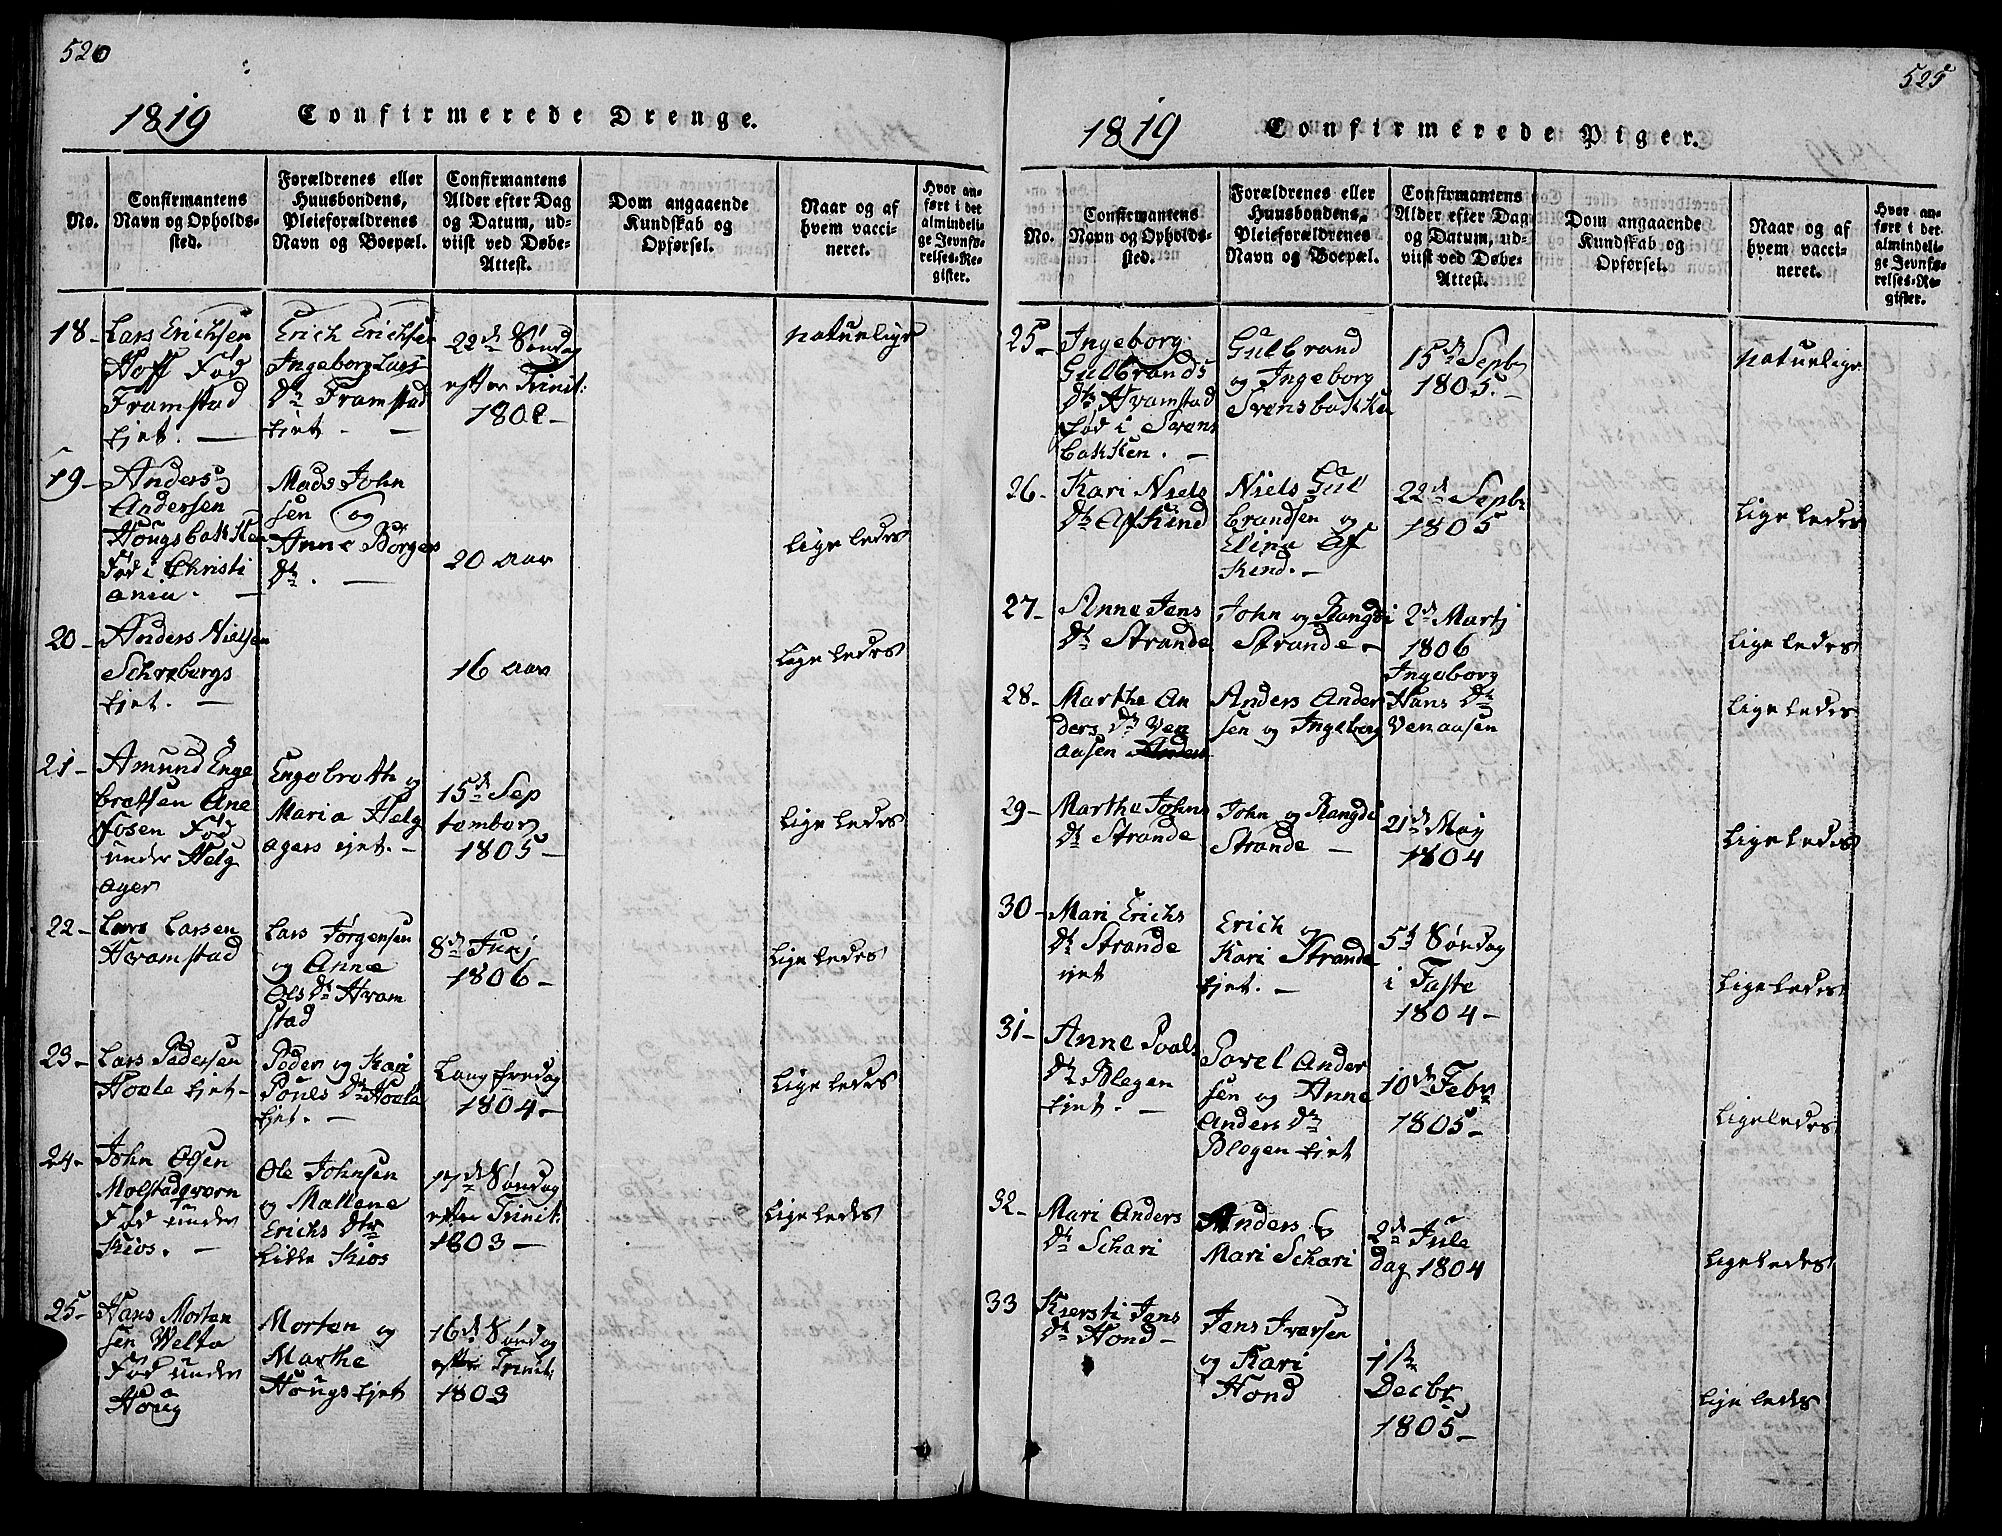 520
1819 Confirmerede Drenge.
No.
Confirmantens
Navn og Opholds-
sted.
Forældrenes eller
Huusbondens,
Pleieforældrenes
Navn og Boepæl.
Confirmantens
Alder efter Dag
og Datum, ud-
viist ved Døbe-
Attest.
Dom angaaende
Kundskab og
Opførsel.
Naar og af
hvem vacci-
neret.
Hvor an-
ført i det
almindeli-
ge Jevnfø-
relses-Re-
gister.
18-
Lars Erichsen
Hoff Fød
Framstad
Ejet. -
Erich Erichsen
Ingeborg Lars
Dtr Framstad
Ejet - -
22de Søndag
efter Trinit:
1802-
naturlige
19-
Anders
Andersen
Hougsbakken
Fød i Christi
ania. -
Mads John
sen og
Anne Börges
Dtr. -
20 aar
Ligeledes
20-
Anders Nielsen
Schrebergs
Ejet. -
16 aar
Ligeledes
21-
Amund Enge
bretsen Ane
fosen Fød
under Helg
ager
Engebreth og
Maria Helg
agers ejet. -
15de Sep
tember
1805-
Ligeledes
22-
Lars Larsen
Hvamstad
Lars Jørgensen
og Anne
Ols Dtr Hvam
stad
8de Junj
1806-
Ligeledes
23-
Lars Pedersen
Hoele Ejet-
Peder og Kari
Pouls Dtr Hoele
Ejet. -
Lang fredag
1804-
Ligeledes
24-
John Olsen
Molstadqvorn
Fød under
Kios. -
Ole Johnsen
og Mallene
Erichs Dtr
Lille Kios
17de Søndag
efter Trinit:
1803-
Ligeledes
25-
Hans Morten
sen Velta
Fød under
Houg
Morten og
Marthe
Hougs Ejet
16de Søndag
efter Trinit:
1803
525
1819 Confirmerede Piger.
No.
Confirmantens
Navn og Opholds-
sted.
Forældrenes eller
Huusbondens,
Pleieforældrenes
Navn og Boepæl.
Confirmantens
Alder efter Dag
og Datum, ud-
viist ved Døbe-
Attest.
Dom angaaende
Kundskab og
Opførsel.
Naar og af
hvem vacci-
neret.
Hvor an-
ført i det
almindeli-
ge Jevnfø-
relses-Re-
gister.
25-
Ingeborg
Gulbrands
Dtr Hvamstad
fød i Svens
bakken. -
Gulbrand
og Ingeborg
Svensbakken
15de Septbr
1805.-
naturlige
26-
Kari Niels
Dtr Afkind
Niels Gul
brandsen og
Elina Af
kind.-
22de Septbr
1805
Ligeledes
27-
Anne Jens
Dtr Strande
John og Rangdi
Strande-
2de Martj
1806
Ligeledes
28-
Marthe An
ders Dtr Ven
aasen
Anders Ander
sen og Ingeborg
Ingeborg
Hans Dtr
Venaasen
Ligeledes
29-
Marthe Johns
Dtr Strande
John og Rangdi
Strande -
21de Maj
1804
Ligeledes
30-
Mari Erichs
Dtr Strande
ejet
Erich og
Kari Strande
Ejet. -
5te Søndag
i Faste
1804-
Ligeledes
31-
Anne Poals
Dtr Blegen
Ejet. -
Povel Ander
sen og Anne
Anders Dtr
Blegen Ejet
10de Febr
1805-
Ligeledes
32-
Mari Anders
Dtr Schari
Anders og
Mari Schari
2de Jule
dag 1804
Ligeledes
33
Kiersti Jens
Dtr Hond-
Jens Iversen
og Kari
Hond
1ste
Decbr
1805-
Ligeledes